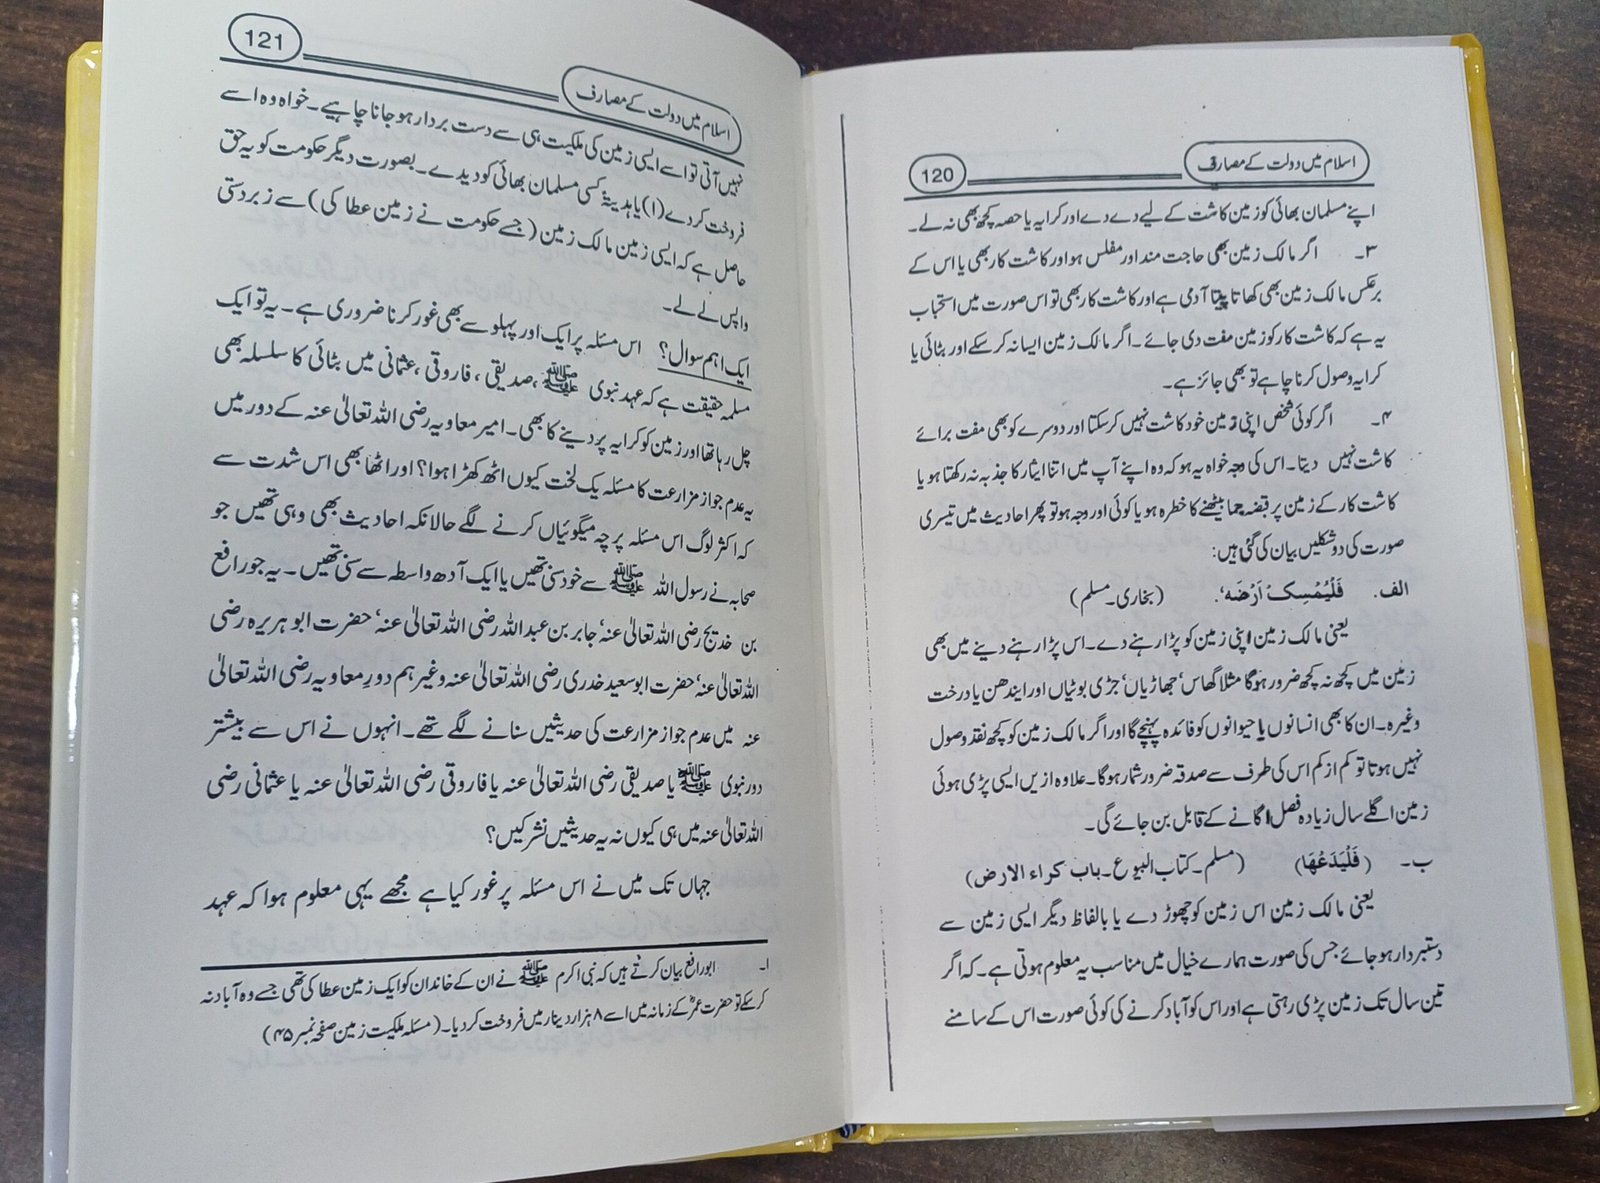 اسلام میں دولت کے مصارف
120
اپنے مسلمان بھائی کو زمین کاشت کے لیے دے دے اور کرایہ یا حصہ کچھ بھی نہ لے۔
۳۔ اگر مالک زمین بھی حاجت مند اور مفلس ہو اور کاشت کار بھی یا اس کے
برعکس مالک زمین بھی کھاتا پیتا آدمی ہے اور کاشت کار بھی تو اس صورت میں استحباب
یہ ہے کہ کاشت کار کو زمین مفت دی جائے۔ اگر مالک زمین ایسا نہ کر سکے اور بٹائی یا
کرایہ وصول کرنا چاہے تو بھی جائز ہے۔
۴۔ اگر کوئی شخص اپنی زمین خود کاشت نہیں کر سکتا اور دوسرے کو بھی مفت برائے
کاشت نہیں دیتا۔ اس کی وجہ خواہ یہ ہو کہ وہ اپنے آپ میں اتنا ایثار کا جذبہ نہ رکھتا ہو یا
کاشت کار کے زمین پر قبضہ جما بیٹھنے کا خطرہ ہو یا کوئی اور وجہ ہو تو پھر احادیث میں تیسری
صورت کی دو شکلیں بیان کی گئی ہیں:
الف۔ فَلْيُمْسِكْ اَرْضَه‘۔ (بخاری۔ مسلم)
یعنی مالک زمین اپنی زمین کو پڑا رہنے دے۔ اس پڑا رہنے دینے میں بھی
زمین میں کچھ نہ کچھ ضرور ہوگا مثلا گھاس‘ جھاڑیاں‘ جڑی بوٹیاں اور ایندھن یا درخت
وغیرہ۔ ان کا بھی انسانوں یا حیوانوں کو فائدہ پہنچے گا اور اگر مالک زمین کو کچھ نقد وصول
نہیں ہوتا تو کم از کم اس کی طرف سے صدقہ ضرور شمار ہوگا۔ علاوہ ازیں ایسی پڑی ہوئی
زمین اگلے سال زیادہ فصل اگانے کے قابل بن جائے گی۔
ب۔ (فَلْيَدَعْهَا) (مسلم۔ کتاب البیوع۔ باب کراء الارض)
یعنی مالک زمین اس زمین کو چھوڑ دے یا بالفاظ دیگر ایسی زمین سے
دستبردار ہو جائے جس کی صورت ہمارے خیال میں مناسب یہ معلوم ہوتی ہے۔ کہ اگر
تین سال تک زمین پڑی رہتی ہے اور اس کو آباد کرنے کی کوئی صورت اس کے سامنے
121
اسلام میں دولت کے مصارف
نہیں آتی تو اسے ایسی زمین کی ملکیت ہی سے دست بردار ہو جانا چاہیے۔ خواہ وہ اسے
فروخت کر دے (۱) یا ہدیۃً کسی مسلمان بھائی کو دیدے۔ بصورت دیگر حکومت کو یہ حق
حاصل ہے کہ ایسی زمین مالک زمین (جسے حکومت نے زمین عطا کی) سے زبردستی
واپس لے لے۔
ایک اہم سوال؟ اس مسئلہ پر ایک اور پہلو سے بھی غور کرنا ضروری ہے۔ یہ تو ایک
مسلمہ حقیقت ہے کہ عہد نبوی ﷺ، صدیقی، فاروقی، عثمانی میں بٹائی کا سلسلہ بھی
چل رہا تھا اور زمین کو کرایہ پر دینے کا بھی۔ امیر معاویہ رضی اللہ تعالیٰ عنہ کے دور میں
یہ عدم جواز مزارعت کا مسئلہ یک لخت کیوں اٹھ کھڑا ہوا؟ اور اٹھا بھی اس شدت سے
کہ اکثر لوگ اس مسئلہ پر چہ میگوئیاں کرنے لگے حالانکہ احادیث بھی وہی تھیں جو
صحابہ نے رسول اللہ ﷺ سے خود سنی تھیں یا ایک آدھ واسطہ سے سنی تھیں۔ یہ جو رافع
بن خدیج رضی اللہ تعالیٰ عنہ‘ جابر بن عبد اللہ رضی اللہ تعالیٰ عنہ‘ حضرت ابو ہریرہ رضی
اللہ تعالیٰ عنہ‘ حضرت ابو سعید خدری رضی اللہ تعالیٰ عنہ وغیرہم دورِ معاویہ رضی اللہ تعالیٰ
عنہ میں عدم جواز مزارعت کی حدیثیں سنانے لگے تھے۔ انہوں نے اس سے بیشتر
دور نبوی ﷺ یا صدیقی رضی اللہ تعالیٰ عنہ یا فاروقی رضی اللہ تعالیٰ عنہ یا عثمانی رضی
اللہ تعالیٰ عنہ میں ہی کیوں نہ یہ حدیثیں نشر کیں؟
جہاں تک میں نے اس مسئلہ پر غور کیا ہے مجھے یہی معلوم ہوا کہ عہد
۱۔ ابو رافع بیان کرتے ہیں کہ نبی اکرم ﷺ نے ان کے خاندان کو ایک زمین عطا کی تھی جسے وہ آباد نہ
کر سکے تو حضرت عمرؓ کے زمانہ میں اسے ۸ ہزار دینار میں فروخت کر دیا۔ (مسئلہ ملکیت زمین صفحہ نمبر ۴۵)